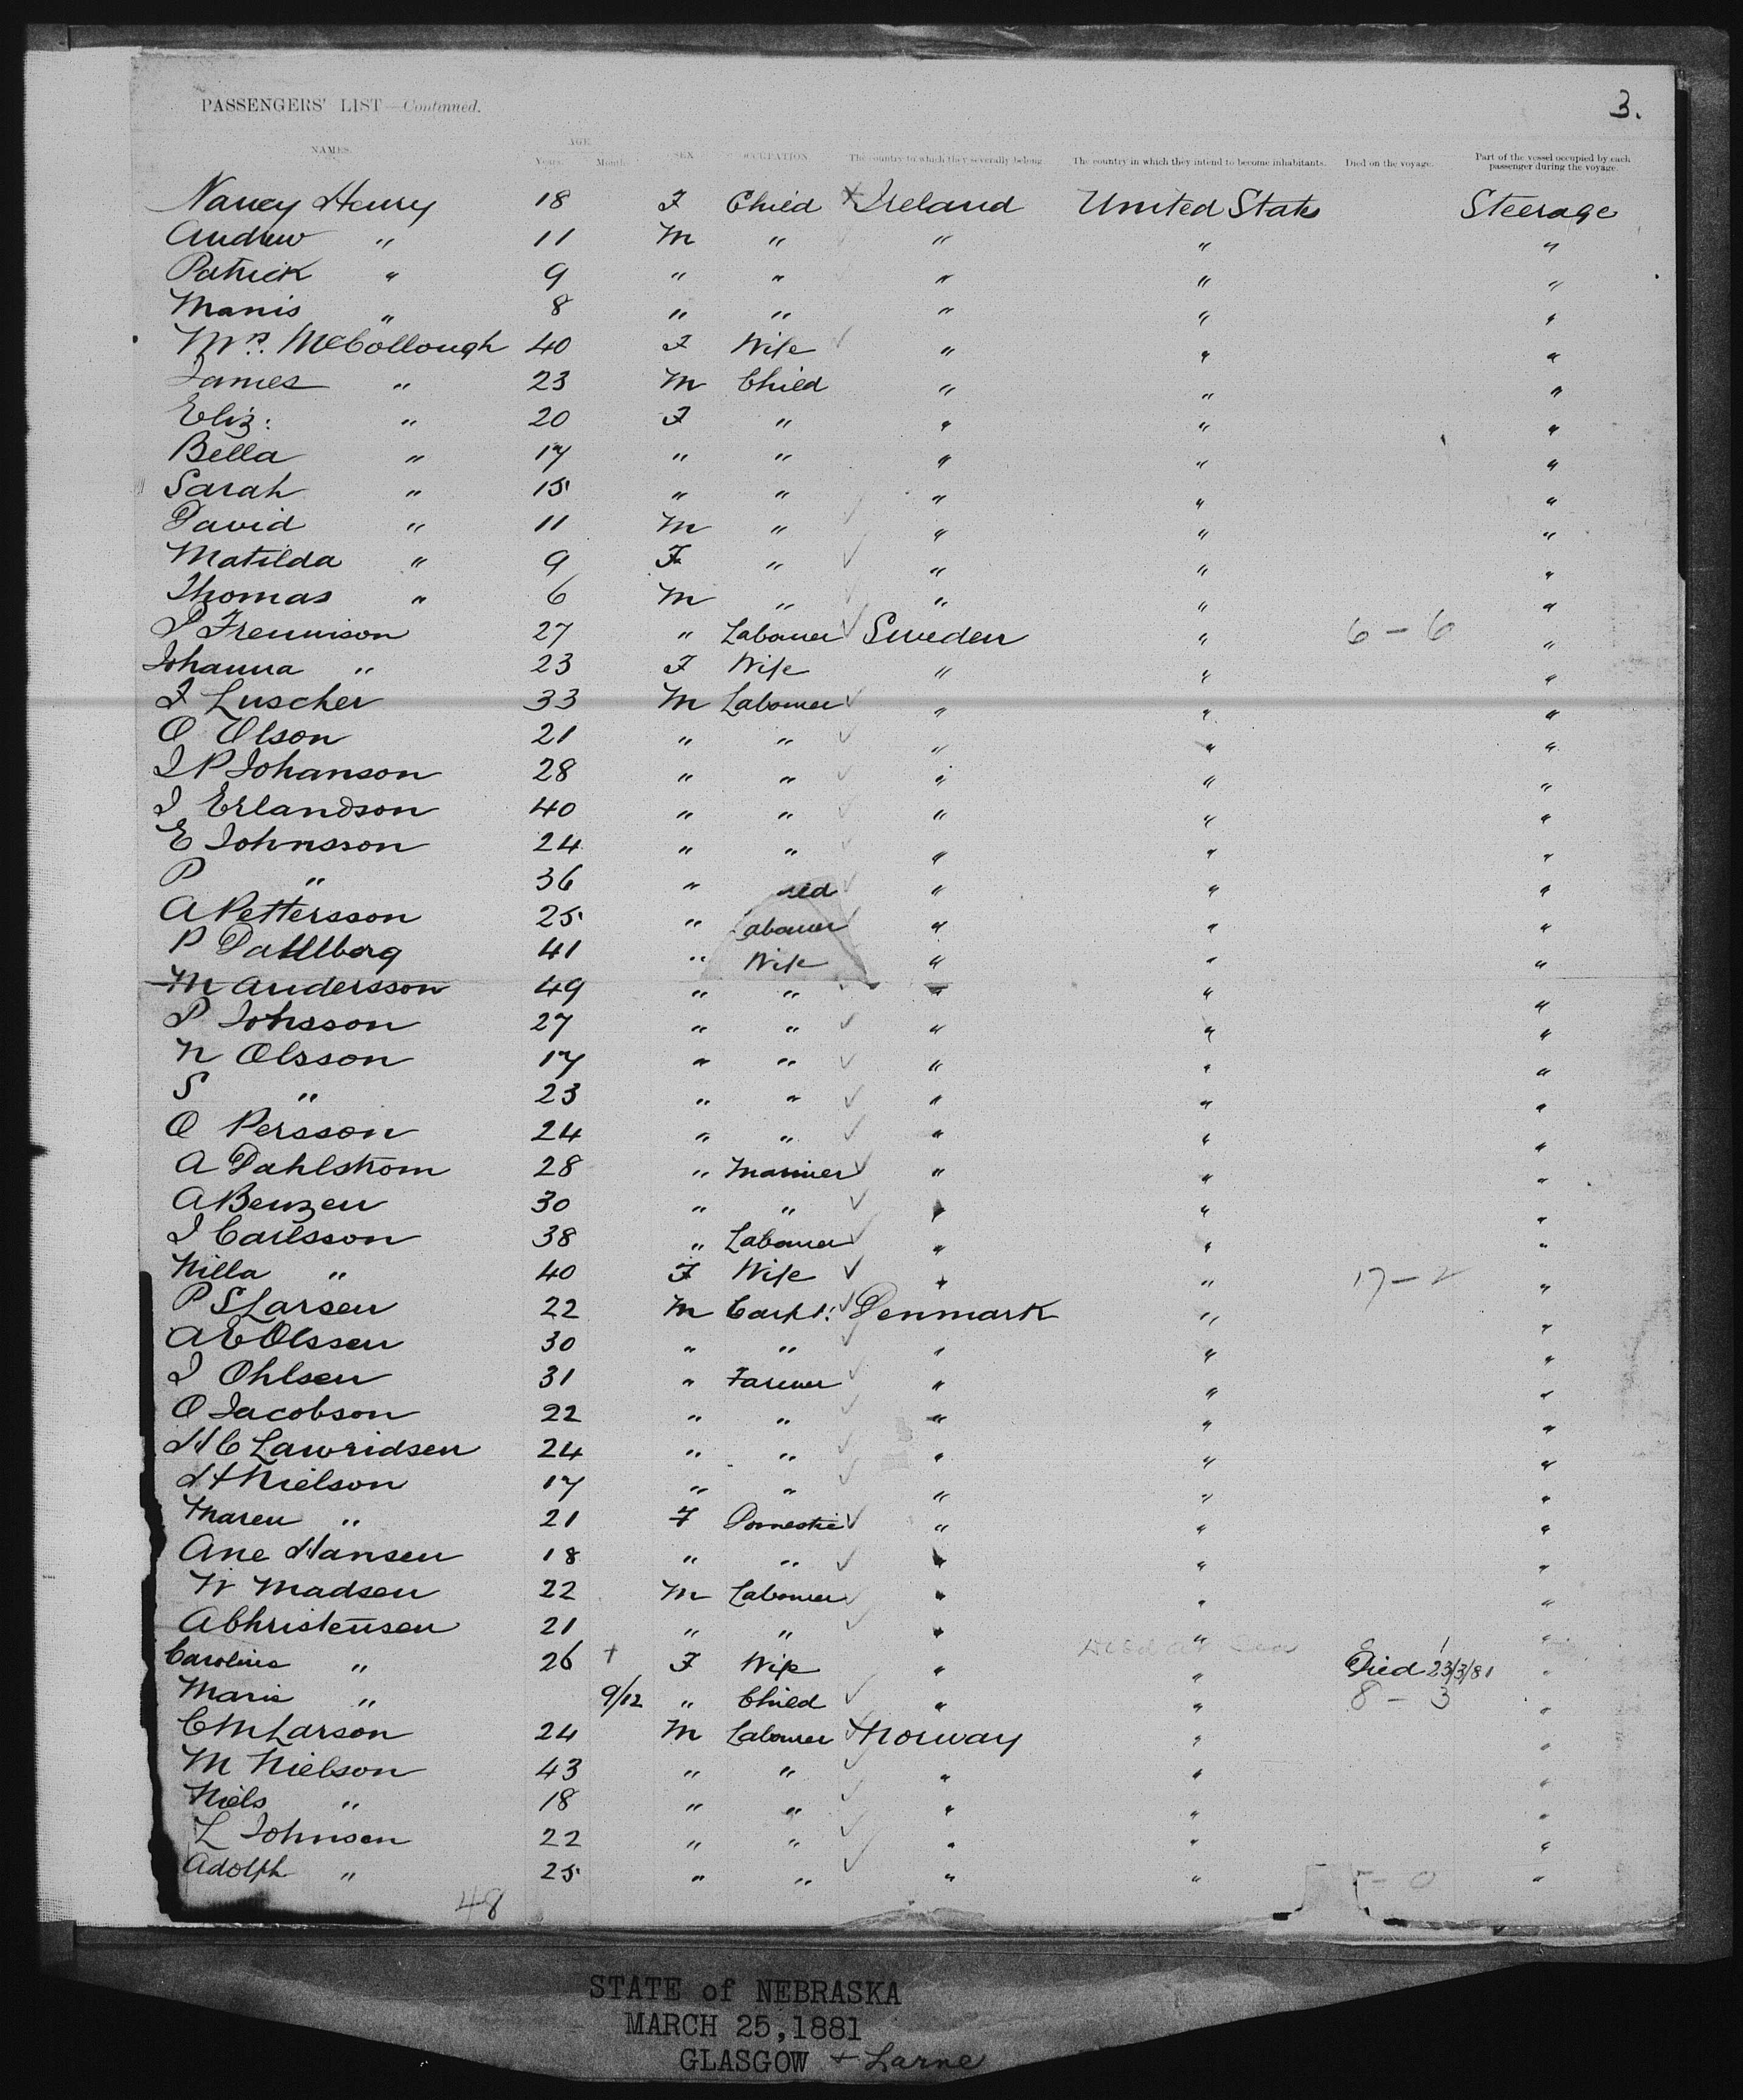 PASSENGERS' LIST—Continued. 3.
NAMES. AGE Years. Months. SEX OCCUPATION. The country to which they severally belong. The country in which they intend to become inhabitants. Died on the voyage. Part of the vessel occupied by each passenger during the voyage.
Nancy Henry 18 F Child Ireland United States Steerage
Andrew " 11 M " " " "
Patrick " 9 " " " " "
Manis " 8 " " " " "
Mrs. McCollough 40 F Wife " " "
James " 23 M Child " " "
Eliz: " 20 F " " " "
Bella " 17 " " " " "
Sarah " 15 " " " " "
David " 11 M " " " "
Matilda " 9 F " " " "
Thomas " 6 M " " " "
P Frennison 27 " Labourer Sweden " 6 - 6 "
Johanna " 23 F Wife " " "
F Luscher 33 M Labourer " " "
O Olson 21 " " " " "
J P Johanson 28 " " " " "
J Erlandson 40 " " " " "
E Johnsson 24 " " " " "
P " 36 " " " "
A Pettersson 25 " Labourer " " "
P Dahlberg 41 " Wife " " "
M Andersson 49 " " " " "
P Johsson 27 " " " " "
N Olsson 17 " " " " "
S " 23 " " " " "
O Persson 24 " " " " "
A Dahlstrom 28 " Mariner " " "
A Benzen 30 " " " " "
J Carlsson 38 " Labourer " " "
Nilla " 40 F Wife " " 17 - 2 "
P S Larsen 22 M Carpt: Denmark " "
A E Olssen 30 " " " " "
J Ohlsen 31 " Farmer " " "
O Jacobson 22 " " " " "
H C Lawridsen 24 " " " " "
H Nielson 17 " " " " "
Maren " 21 F Domestic " " "
Ane Hansen 18 " " " " "
W Madsen 22 M Labourer " " "
A Christensen 21 " " " " "
Caroline " 26 + F Wife " " Died 23/3/81 "
Marie " 9/12 " Child " " 8 - 3 "
C M Larson 24 M Labourer Norway " "
M Nielson 43 " " " " "
Niels " 18 " " " " "
L Johnsen 22 " " " " "
Adolph " 25 " " " " "
48
STATE of NEBRASKA
MARCH 25,1881
GLASGOW + Larne